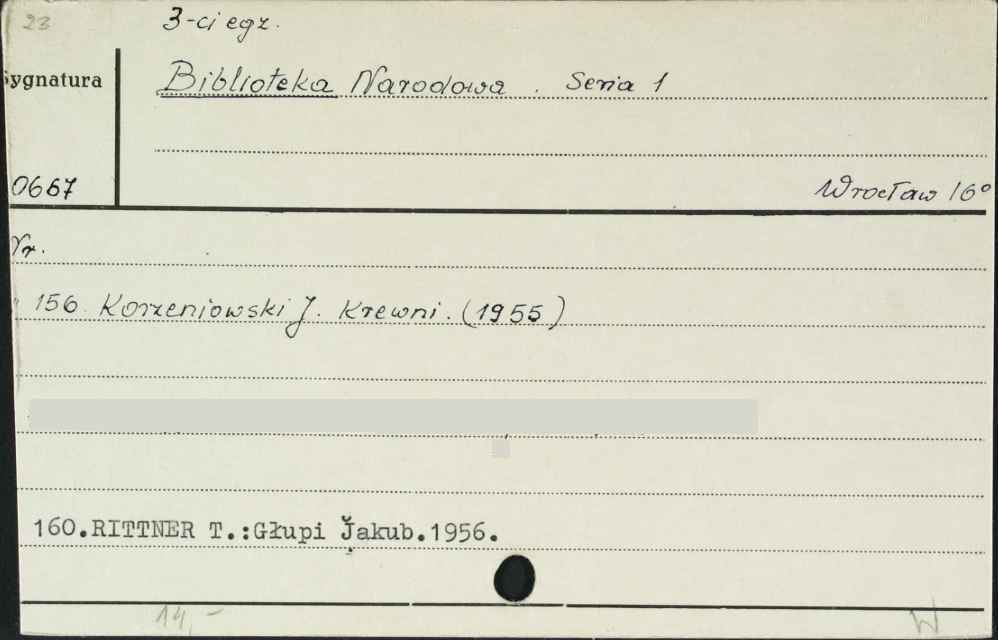 23
3-ci egz.
Sygnatura
Biblioteka Narodowa. Seria 1
0667
Wrocław 16°
Nr.
156. Korzeniowski J. Krewni. (1955)
160.RITTNER T.:Głupi Jakub.1956.
14,-
W